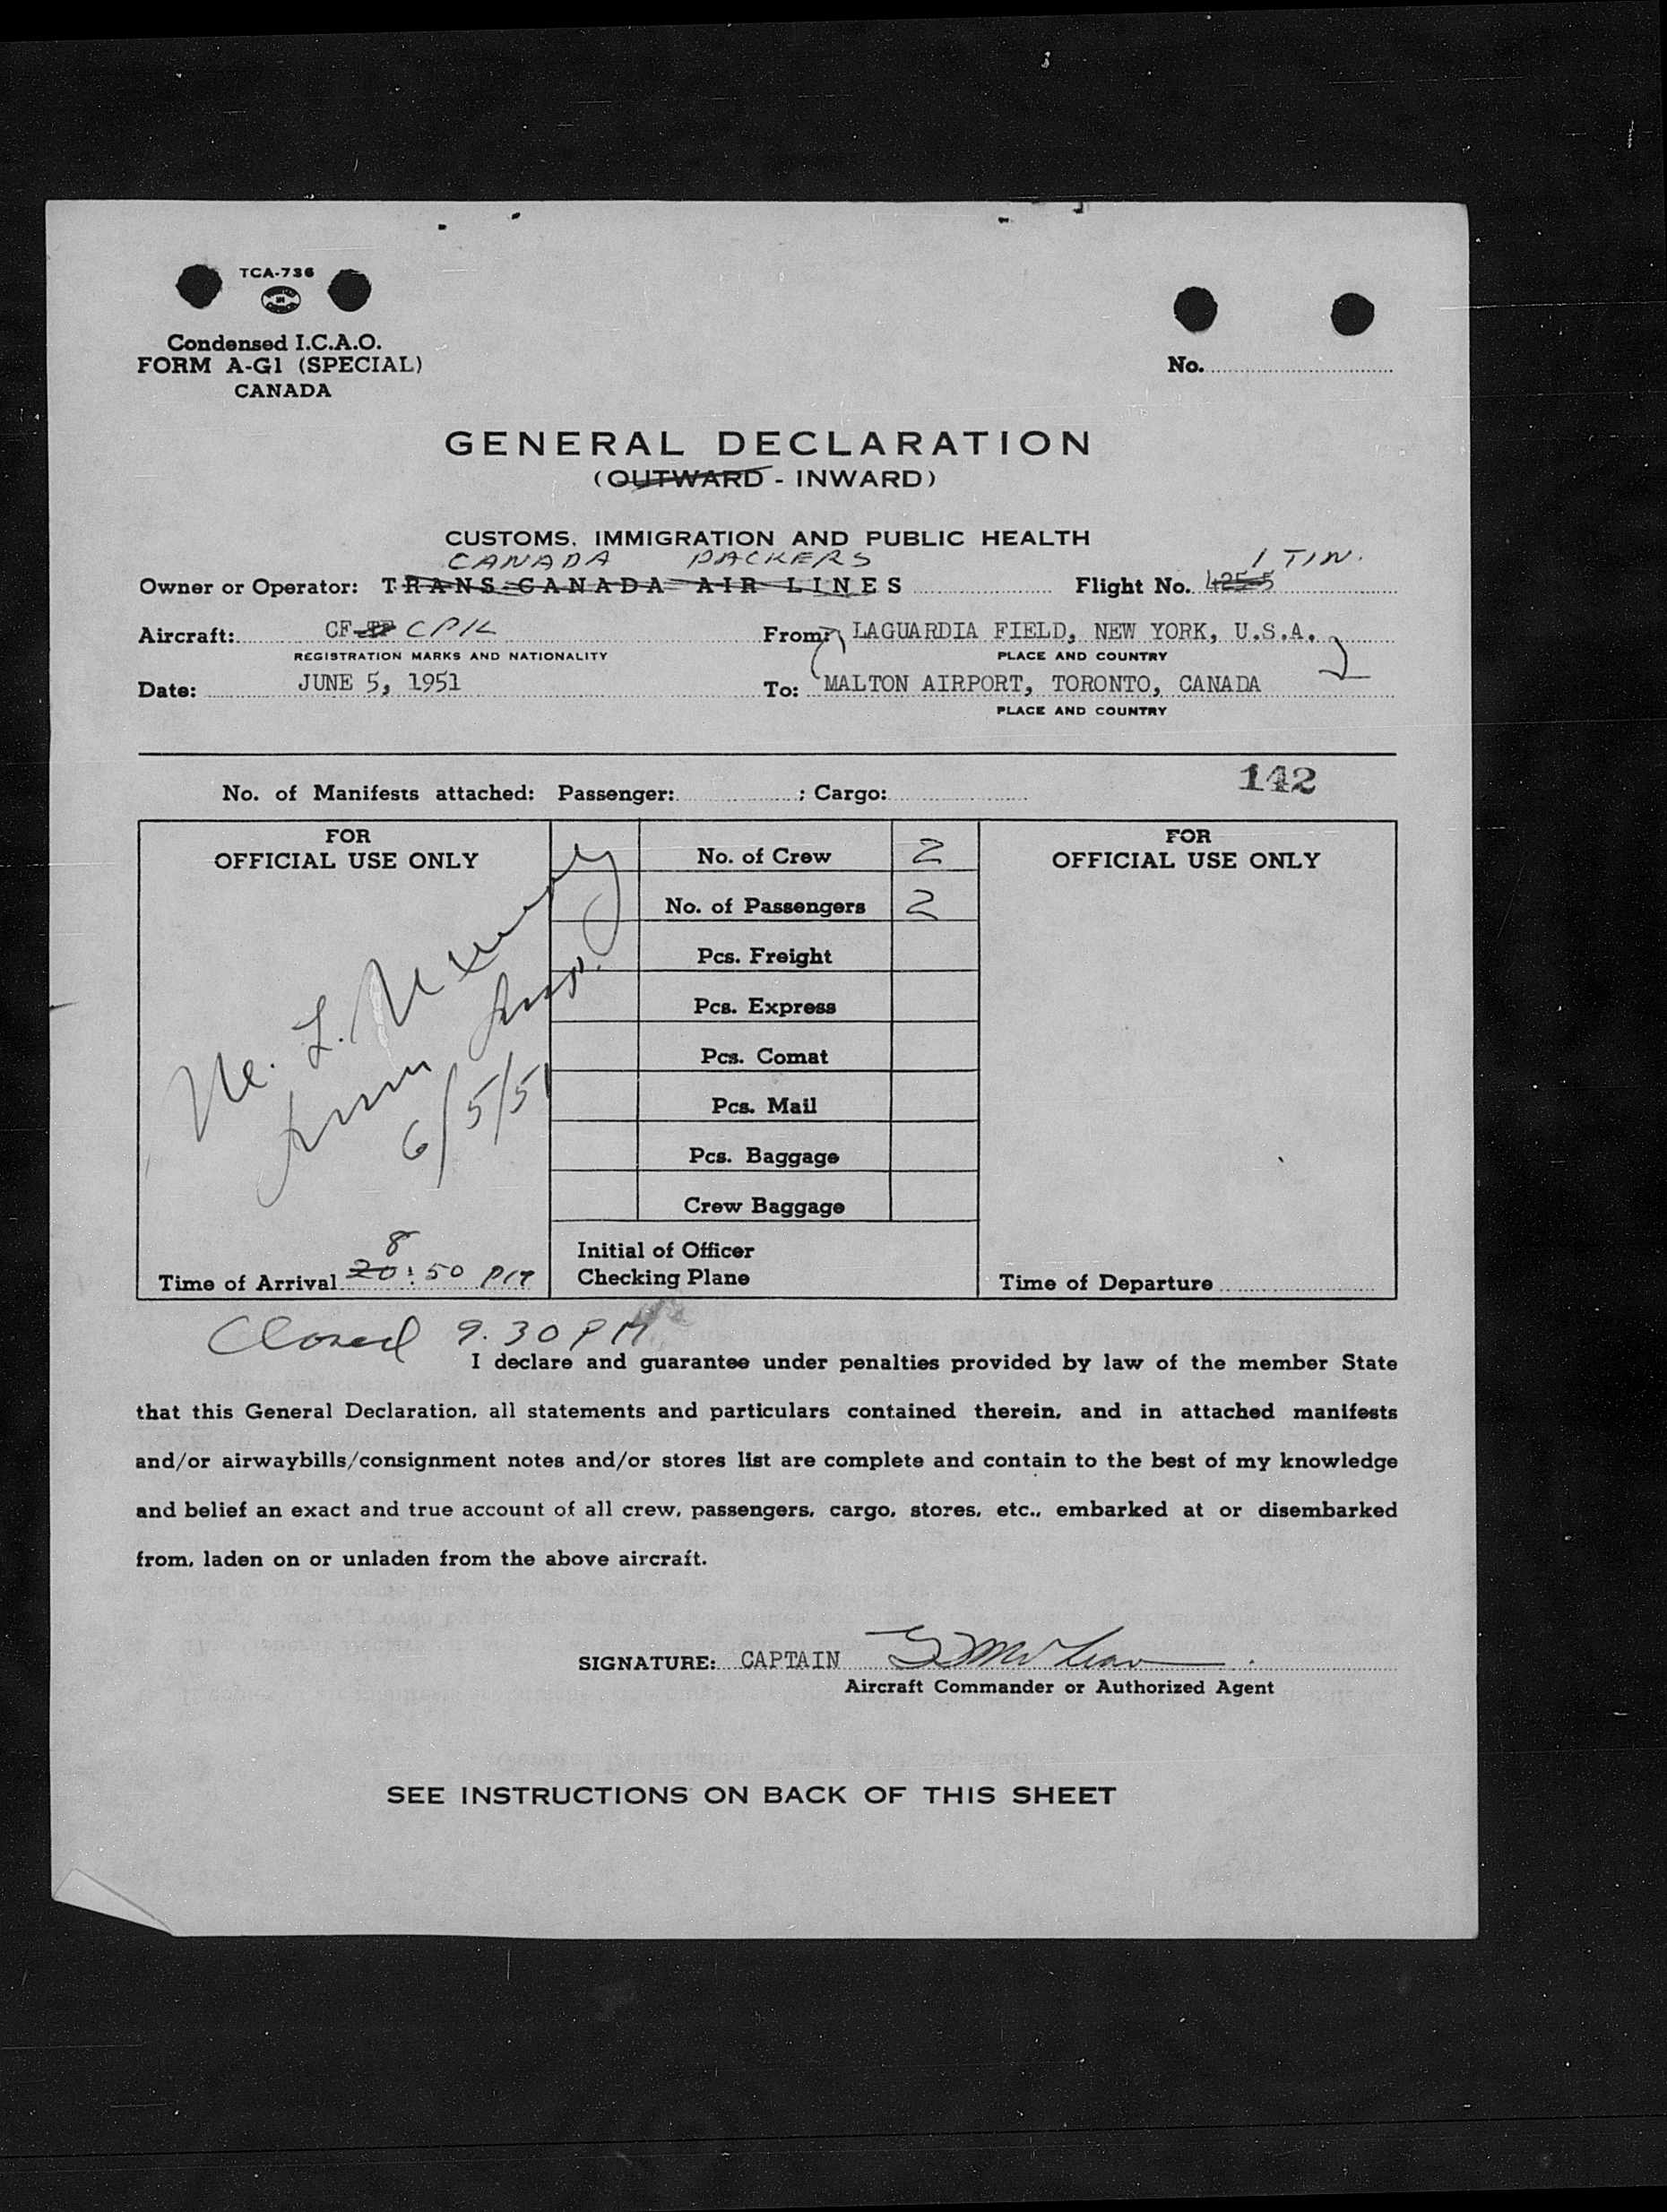 TCA-736
Condensed I.C.A.O.
FORM A-G1 (SPECIAL)
CANADA
No.
GENERAL DECLARATION
(OUTWARD - INWARD)
CUSTOMS, IMMIGRATION AND PUBLIC HEALTH
CANADA PACKERS 1 TIN.
Owner or Operator: TRANS-CANADA AIR LINES Flight No. 4255
Aircraft: CF- CPK From: LAGUARDIA FIELD, NEW YORK, U.S.A.
REGISTRATION MARKS AND NATIONALITY PLACE AND COUNTRY
Date: JUNE 5, 1951 To: MALTON AIRPORT, TORONTO, CANADA
PLACE AND COUNTRY
142
No. of Manifests attached: Passenger: ; Cargo:
FOR
OFFICIAL USE ONLY
6/5/51
8
Time of Arrival 20:50 PM
No. of Crew 2
No. of Passengers 2
Pcs. Freight
Pcs. Express
Pcs. Comat
Pcs. Mail
Pcs. Baggage
Crew Baggage
Initial of Officer
Checking Plane
FOR
OFFICIAL USE ONLY
Time of Departure
Closed 9.30 PM
I declare and guarantee under penalties provided by law of the member State
that this General Declaration, all statements and particulars contained therein, and in attached manifests
and/or airwaybills/consignment notes and/or stores list are complete and contain to the best of my knowledge
and belief an exact and true account of all crew, passengers, cargo, stores, etc., embarked at or disembarked
from, laden on or unladen from the above aircraft.
SIGNATURE: CAPTAIN
Aircraft Commander or Authorized Agent
SEE INSTRUCTIONS ON BACK OF THIS SHEET